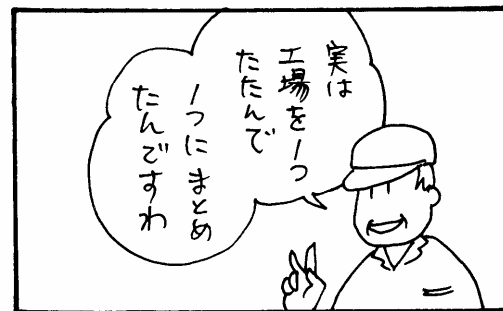 実は
工場を1つ
たたんで
1つにまとめ
たんですわ